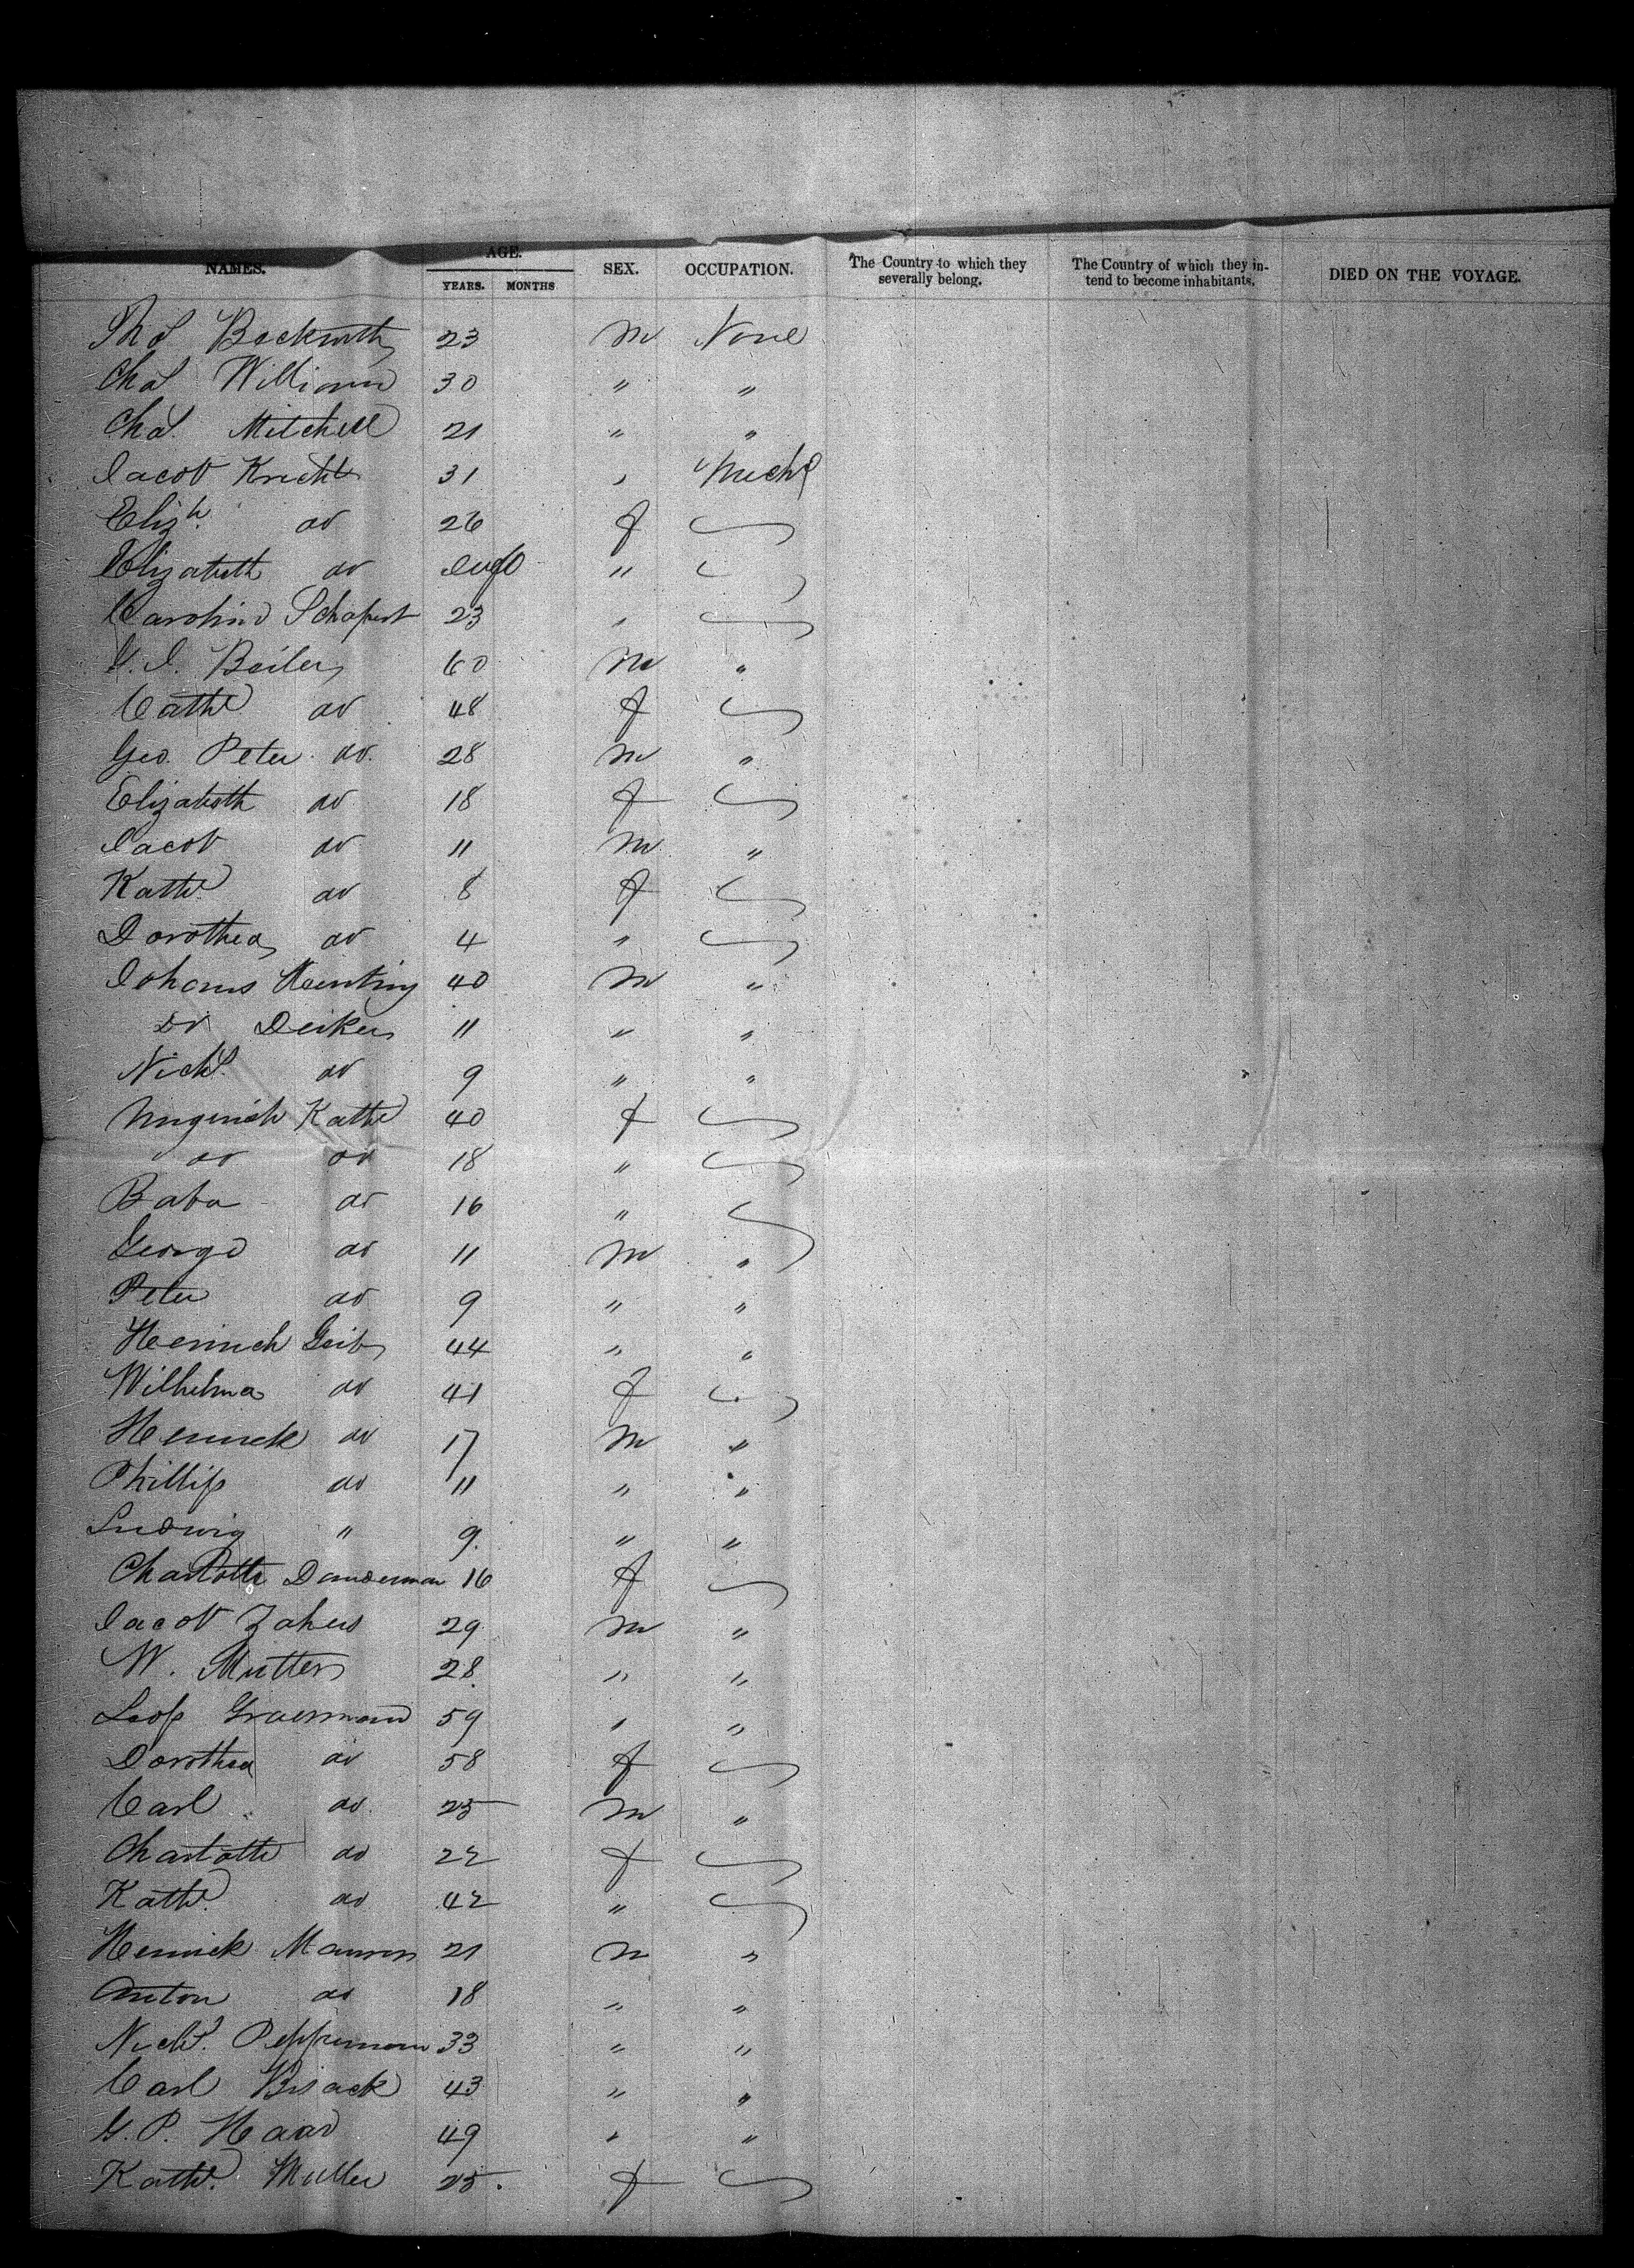 NAMES. AGE. SEX. OCCUPATION. The Country to which they severally belong. The Country of which they intend to become inhabitants. DIED ON THE VOYAGE.
YEARS. MONTHS
Thos Beckwith 23 m None
Chas William 30 " "
Chas. Mitchell 21 " "
Jacob 31 " Mech
Elizh. do 26 f
Elizabeth do Inft "
Caroline 23 "
60 m "
Cathe do 48 f
Geo. Peter do. 28 m "
Elizabeth do 18 f
Jacob do 11 m "
Kathe do 8 f
Dorothea do 4 "
Johans 40 m "
Do 11 " "
Nichs. do 9 " "
Kathe 40 f
do do 18 "
Baba do 16 "
George do 11 m "
Peter do 9 " "
Heinrich Geib 44 " "
Wilhelma do 41 f
Henrick do 17 m "
Phillip do 11 " "
Ludwig " 9. " "
Charlotte 16 f
Jacob Zahers 29 m "
W. Mutter 28. " "
Leop 59 " "
Dorothea do 58 f
Carl do. 25 m "
Charlotte do 22 f
Kathe. do 42 "
Henrick 21 m "
Anton do 18 " "
Nichs. 33 " "
Carl 43 " "
G. P. Haas 49 " "
Kathe. Muller 25. f